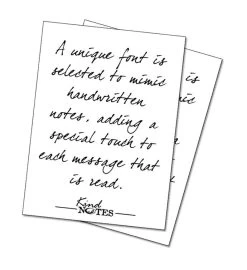 A unique font is
selected to mimic
handwritten
notes, adding a
special touch to
each message that
is read.
Kind
NOTES
is
mic